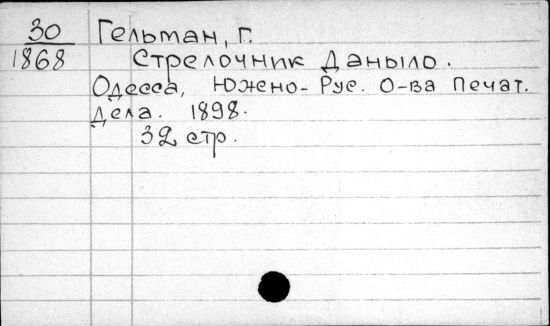 30 Гельман, Г.
1868 Стрелочник Даныло.
Одесса, Южено-Рус. О-ва Печат.
Дела. 1898.
32 стр.